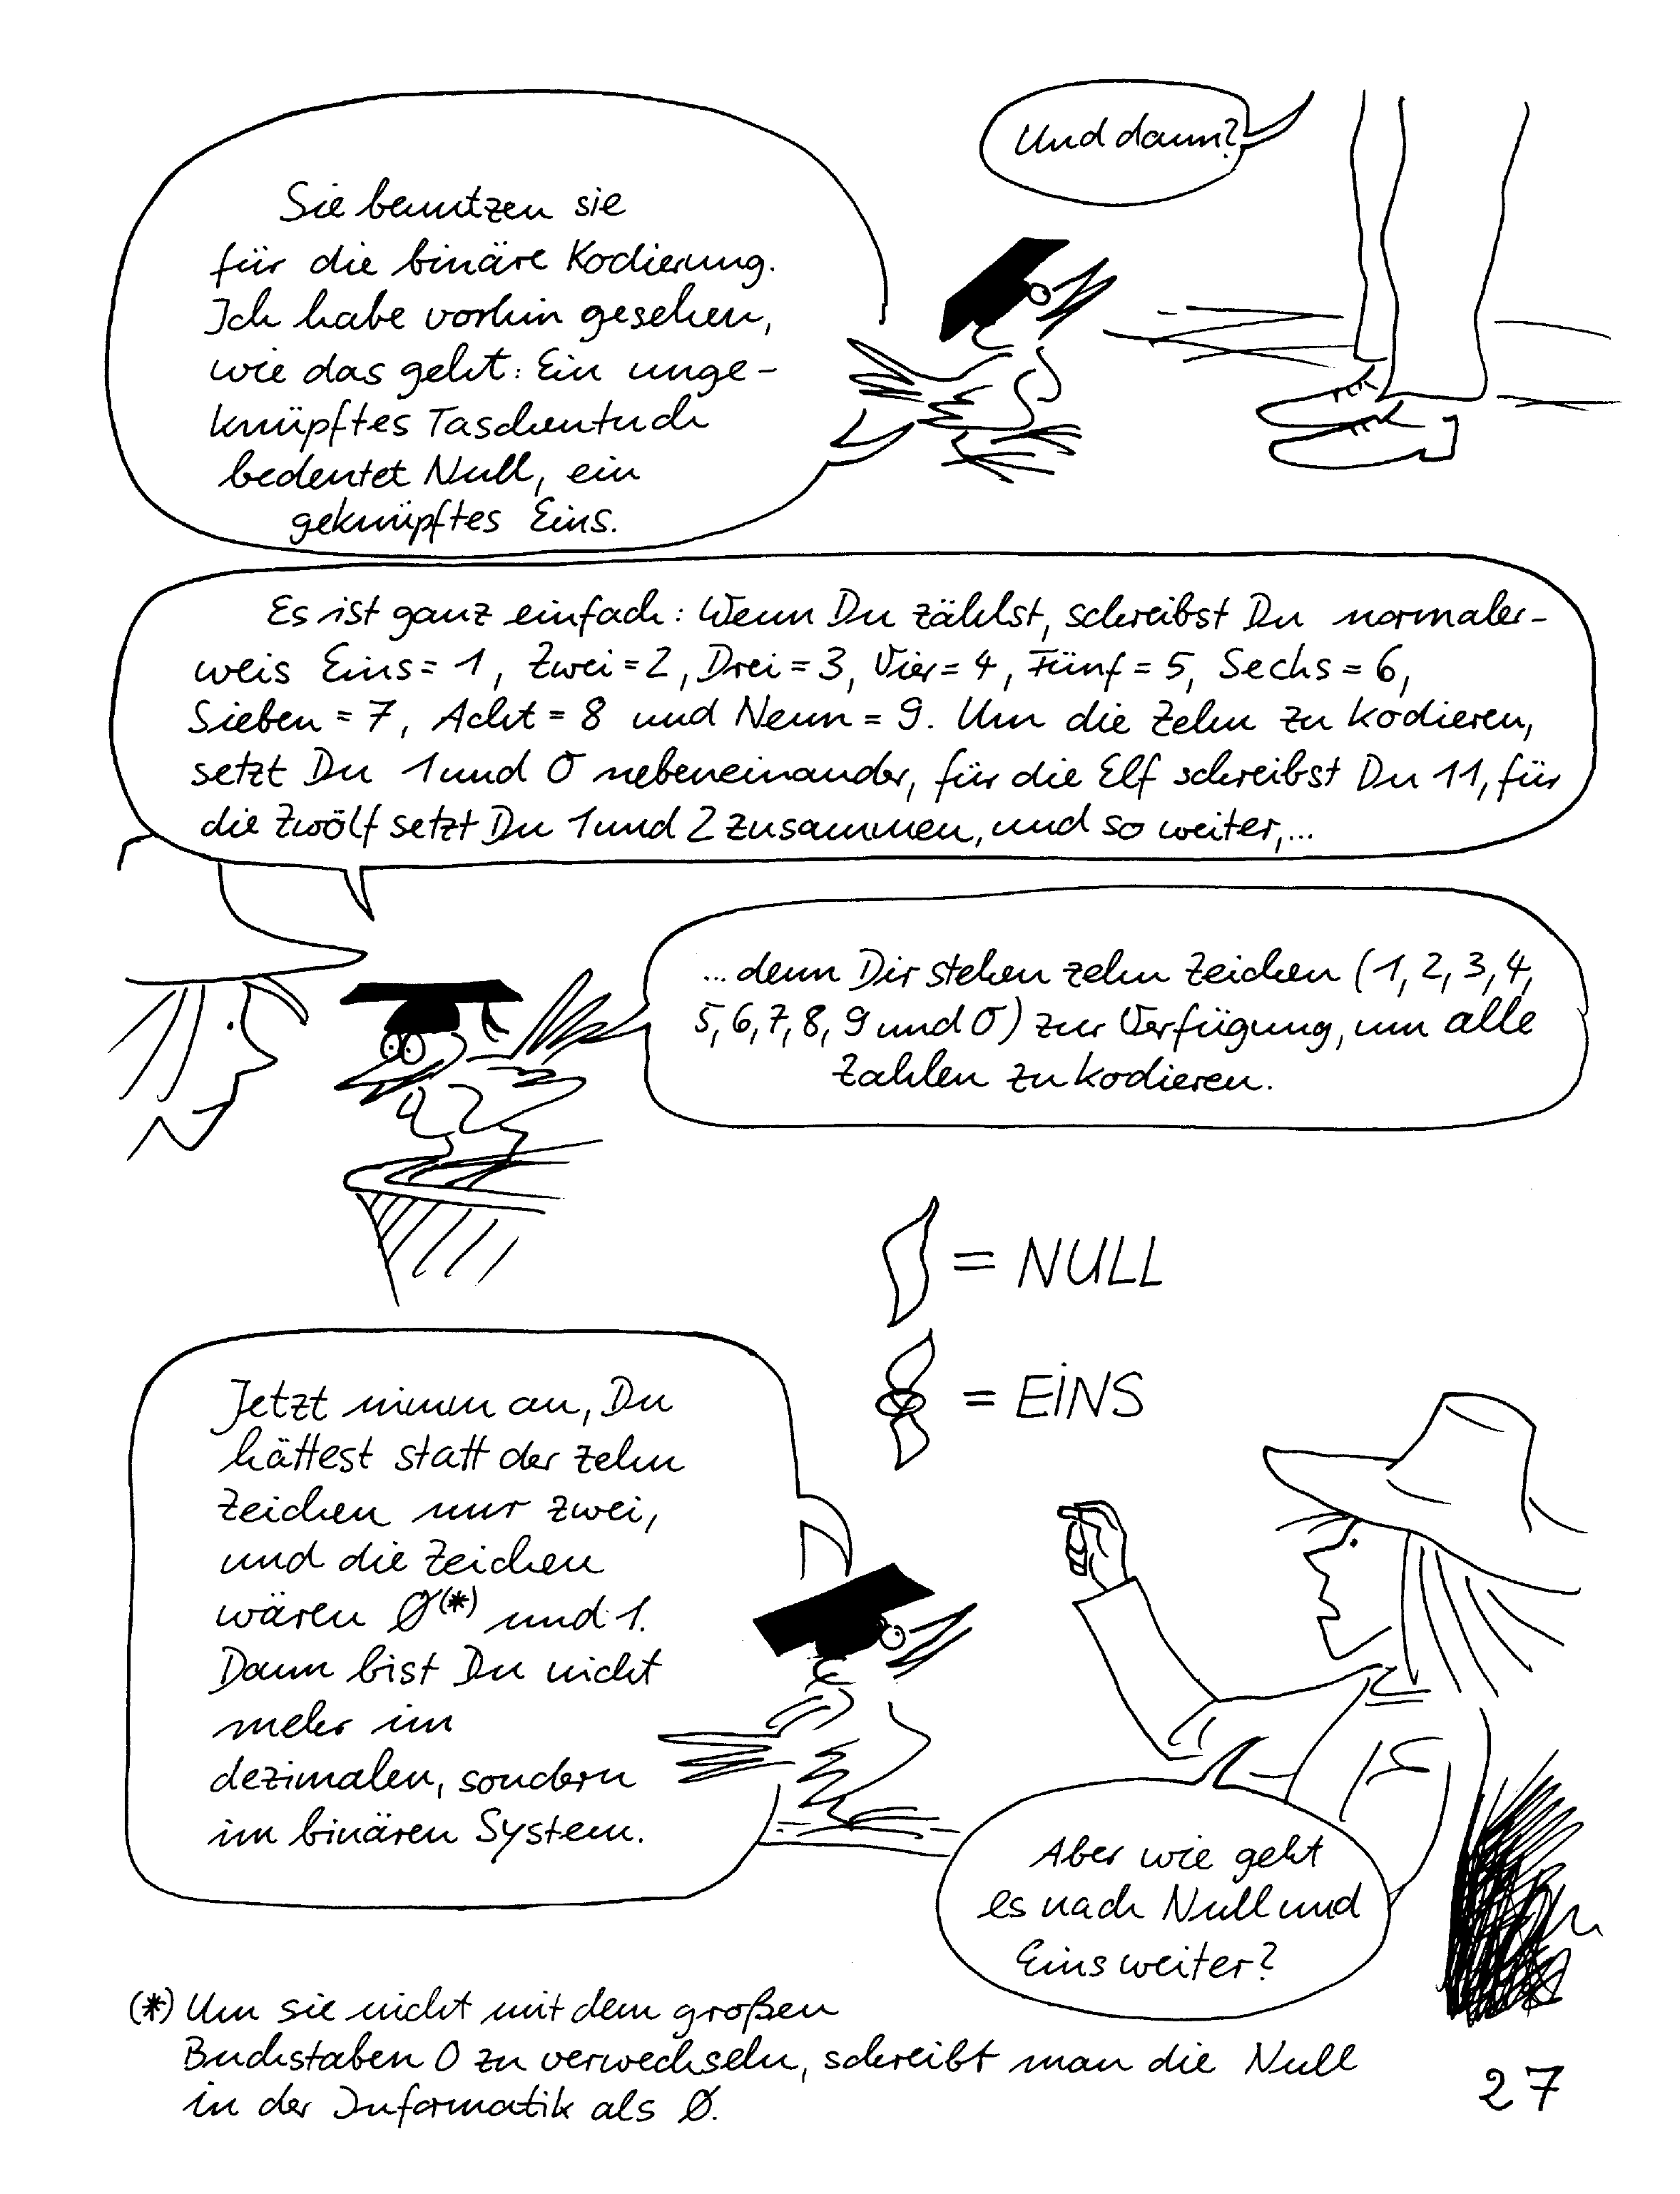 Und dann?
Sie benutzen sie
für die binäre Kodierung.
Ich habe vorhin gesehen,
wie das geht: Ein unge-
knüpftes Taschentuch
bedeutet Null, ein
geknüpftes Eins.
Es ist ganz einfach: Wenn Du zählst, schreibst Du normaler-
weis Eins = 1, Zwei = 2, Drei = 3, Vier = 4, Fünf = 5, Sechs = 6,
Sieben = 7, Acht = 8 und Neun = 9. Um die Zehn zu kodieren,
setzt Du 1 und 0 nebeneinander, für die Elf schreibst Du 11, für
die Zwölf setzt Du 1 und 2 zusammen, und so weiter,...
... denn Dir stehen zehn Zeichen (1, 2, 3, 4,
5, 6, 7, 8, 9 und 0) zur Verfügung, um alle
Zahlen zu kodieren.
= NULL
= EINS
Jetzt nimm an, Du
hättest statt der zehn
Zeichen nur zwei,
und die Zeichen
wären Ø(*) und 1.
Dann bist Du nicht
mehr im
dezimalen, sondern
im binären System.
Aber wie geht
es nach Null und
Eins weiter?
(*) Um sie nicht mit dem großen
Buchstaben O zu verwechseln, schreibt man die Null
in der Informatik als Ø.
27